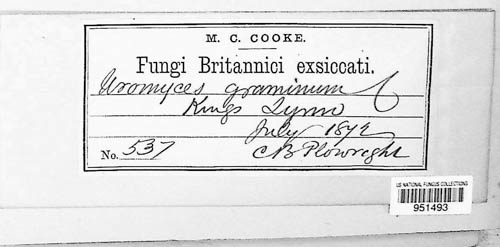 M. C. COOKE.
Fungi Britannici exsiccati.
Uromyces graminum C
Kings Lynn
July 1872
No. 537 C B Plowright
US NATIONAL FUNGUS COLLECTIONS
951493